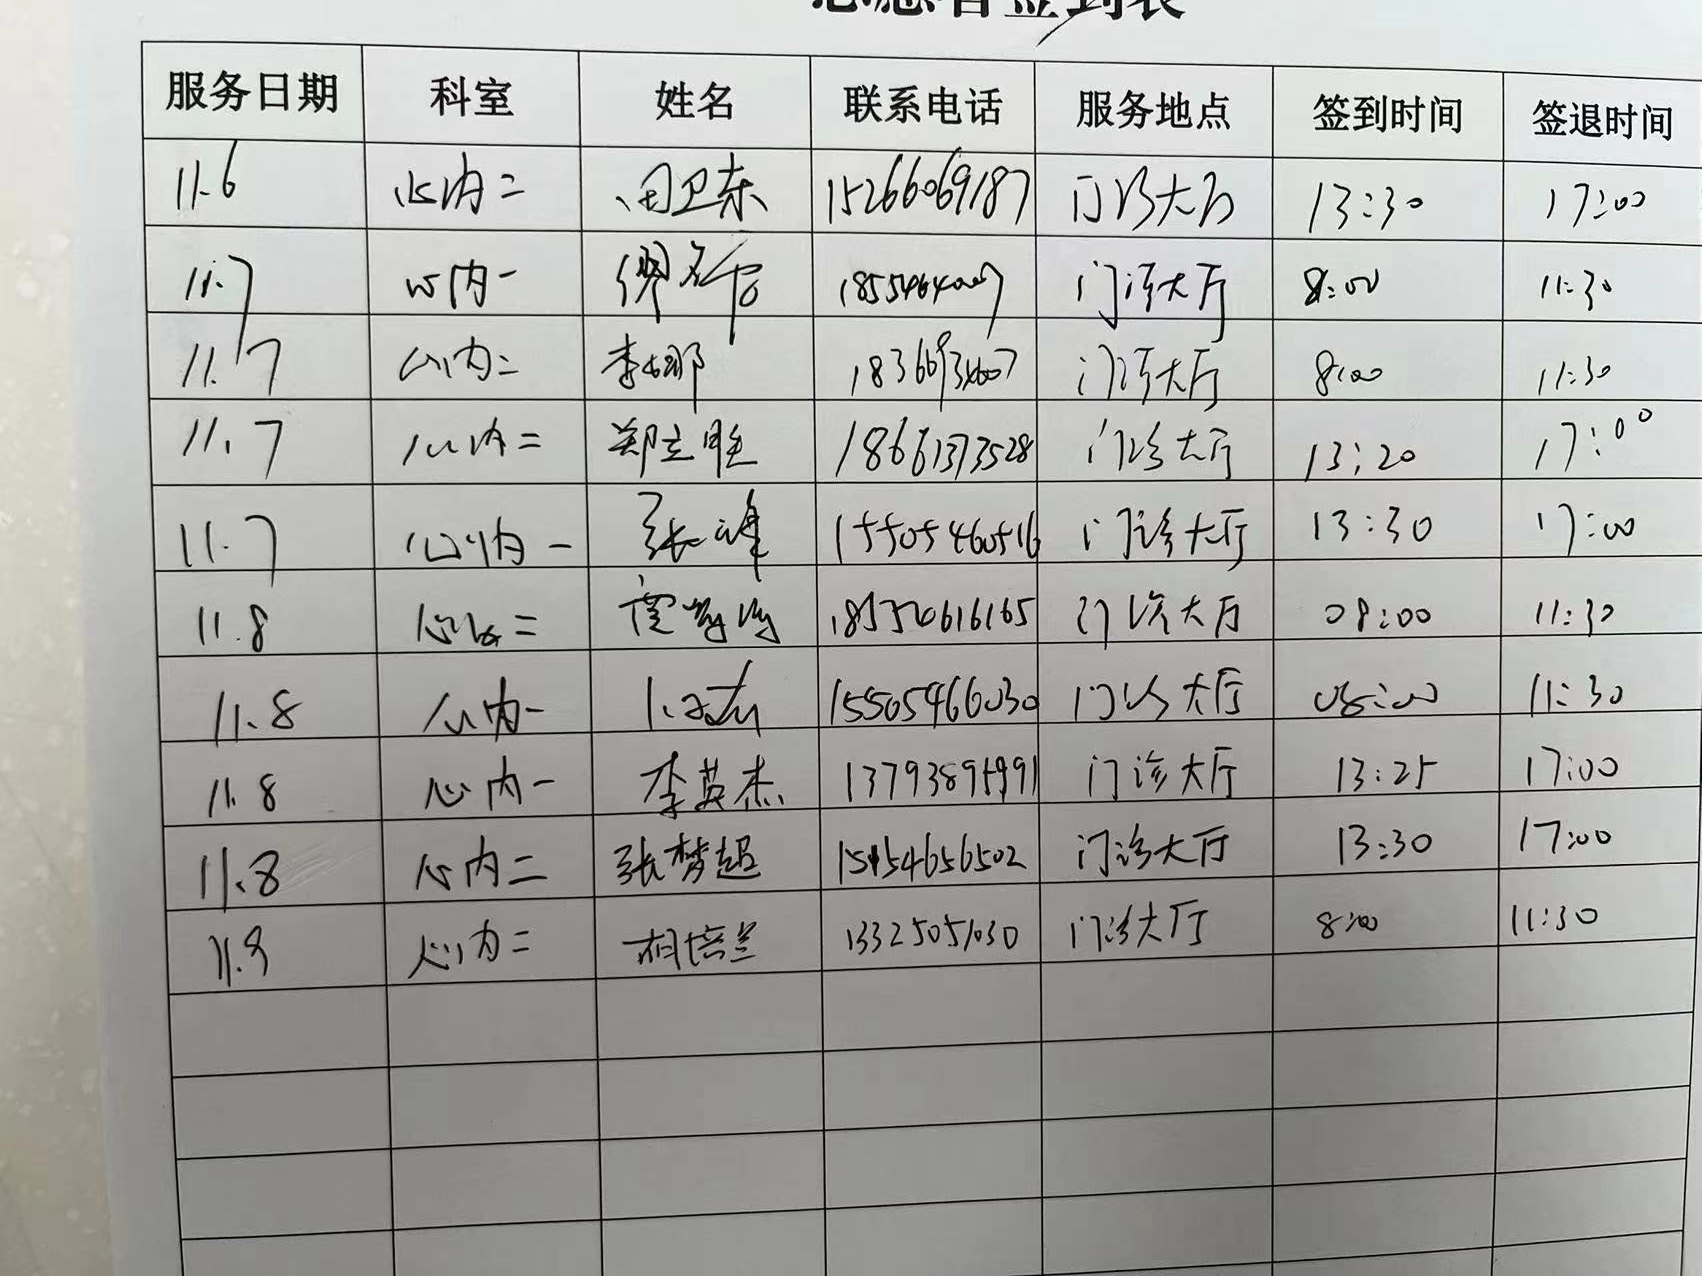 志愿者签到表
服务日期 科室 姓名 联系电话 服务地点 签到时间 签退时间
11.6 心内二 田卫东 15266069187 门诊大厅 13:30 17:00
11.7 心内一 门诊大厅 8:00 11:30
11.7 心内二 李娜 门诊大厅 8:00 11:30
11.7 心内二 郑立胜 18661373528 门诊大厅 13:20 17:00
11.7 心内一 张峰 15505460516 门诊大厅 13:30 17:00
11.8 心内二 18550616165 门诊大厅 08:00 11:30
11.8 心内一 15505466030 门诊大厅 08:00 11:30
11.8 心内一 李英杰 13793895991 门诊大厅 13:25 17:00
11.8 心内二 张梦超 15154656502 门诊大厅 13:30 17:00
11.9 心内二 相培兰 13325051030 门诊大厅 8:00 11:30